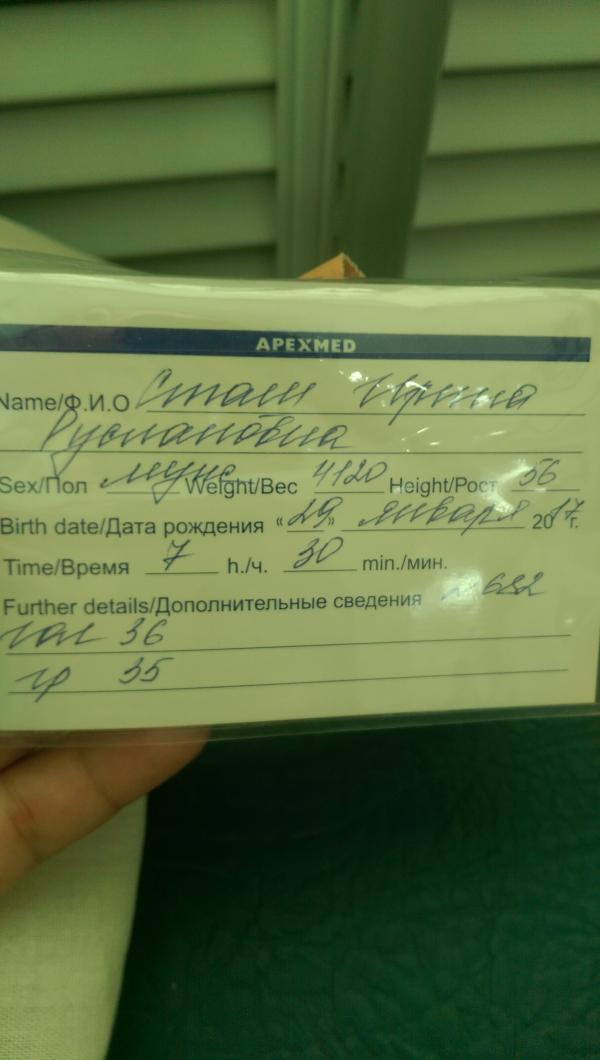 APEXMED
Name/Ф.И.О Сташ Ирина
Руслановна
Sex/Пол муж Weight/Вес 4120 Height/Рост 56
Birth date/Дата рождения “29” января 2017г.
Time/Время 7 h./ч. 30 min./мин.
Further details/Дополнительные сведения 682
гол 36
гр 35